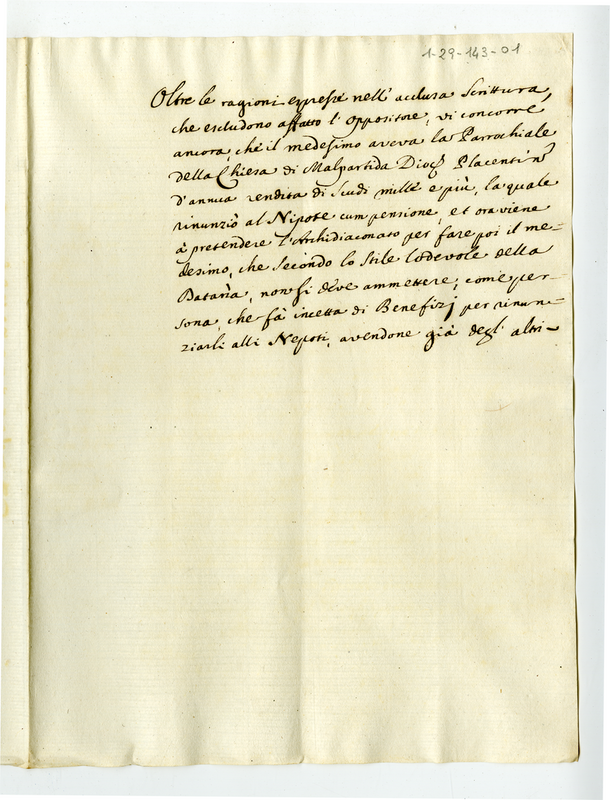 1-29-143-01
Oltre le ragioni espresse nell' acclusa Scrittura,
che escludono affatto l' Oppositore, vi concorre
ancora, che il medesimo aveva la Parrochiale
della Chiesa di Malpartida Dioc. Placentin
d'annua rendita di Scudi mille e più, la quale
rinunziò al Nipote cum pensione, et ora viene
à pretendere l'Archidiaconato per fare poi il me-
desimo, che secondo lo Stile lodevole della
Dataria, non si deve ammettere, come per-
sona, che fà incetta di Benefizj per rinun-
ziarli alli Nepoti, avendone già degl' altri-